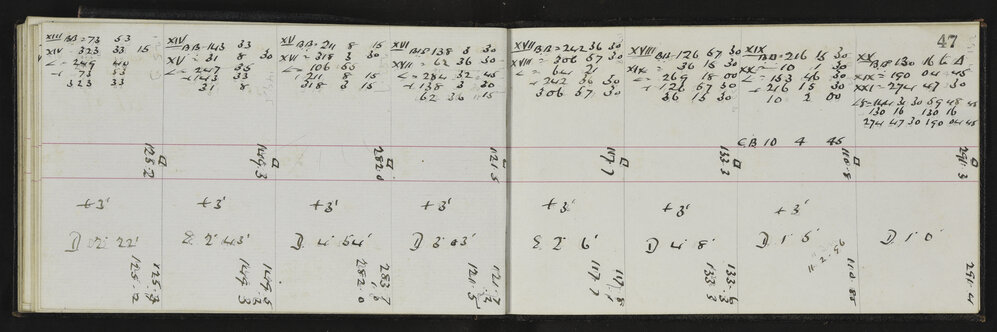 47
XIII BB = 73 53
XIV - 323 33 15
< = 249 40
+ 73 53
323 33
XIV BB - 143 33
XV = 31 8 30
< = 247 35
+ 143 33
31 8
XV BB = 211 8 15
XVI = 318 3 30
< = 106 55
211 8 15
318 3 15
XVI BB 138 3 30
XVII = 62 36 30
< = 284 32 45
+ 138 3 30
62 36 15
XVII BB = 242 36 30
XVIII = 306 57 30
< = 64 21
+ 242 36 30
306 57 30
XVIII BB - 126 57 30
XIX = 36 15 30
< = 269 18 00
+ 126 57 30
36 15 30
XIX BB = 216 15 30
XX = 10 1 30
< = 153 46 30
+ 216 15 30
10 2 00
CB 10 4 45
XX BB 130 16
XIX = 190 04 45
XXI = 274 47 30
130 16 130 16
274 47 30 190 04 45
125.2
149.3
282.0
121.5
117.7
133.3
110.8
291.3
+3' +3' +3' +3' +3' +3' +3'
D 2. 22'
2. 43'
D 4. 54'
D 3. 03'
2. 6'
D 4. 8'
D 1. 5'
D 1. 0'
125.3
125.2
149.5
149.3
283.7
282.0
121.7
121.5
117.8
117.7
133.6
133.3
110.85
291.4